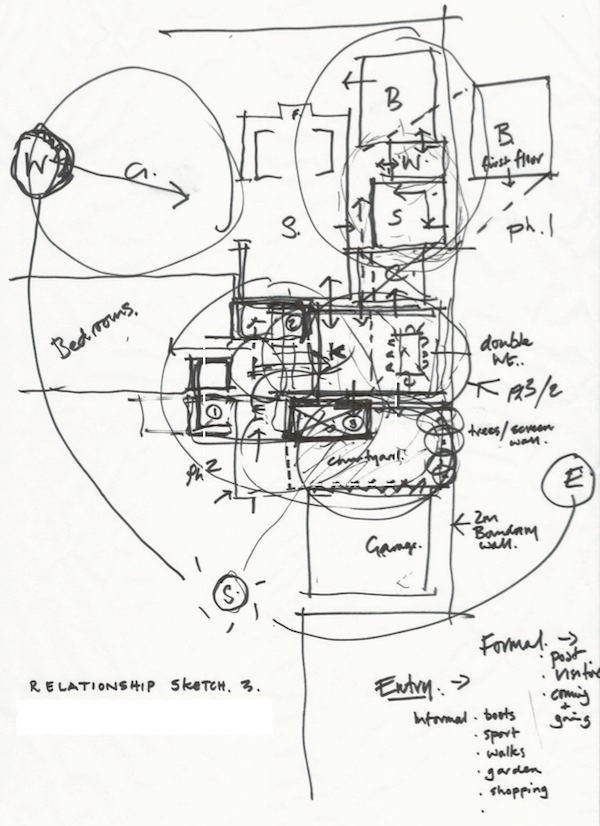 B
W
G.
W.
B.
first floor
S
S.
ph. 1
Bedrooms.
2
K
double
ht..
1
3
trees/screen
wall.
ph2
courtyard.
E
2m
Boundary
wall.
Garage.
S.
RELATIONSHIP SKETCH. 3.
Formal. →
· post
· visitors
· coming
+
going
Entry. →
Informal · boots
· sport
· walks
· garden
· shopping
·